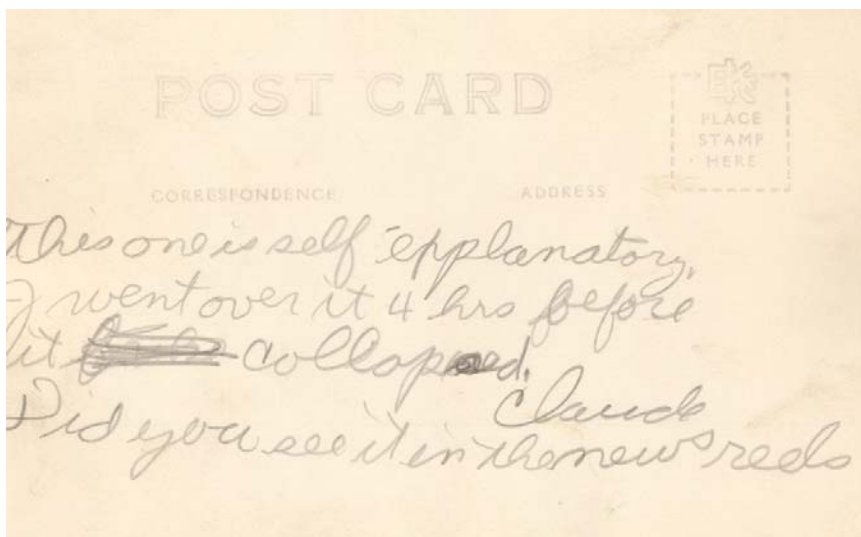 POST CARD
EK
PLACE
STAMP
HERE
CORRESPONDENCE ADDRESS
This one is self epplanatory,
I went over it 4 hrs before
it collopsed.
Claude
Did you see it in the news reels